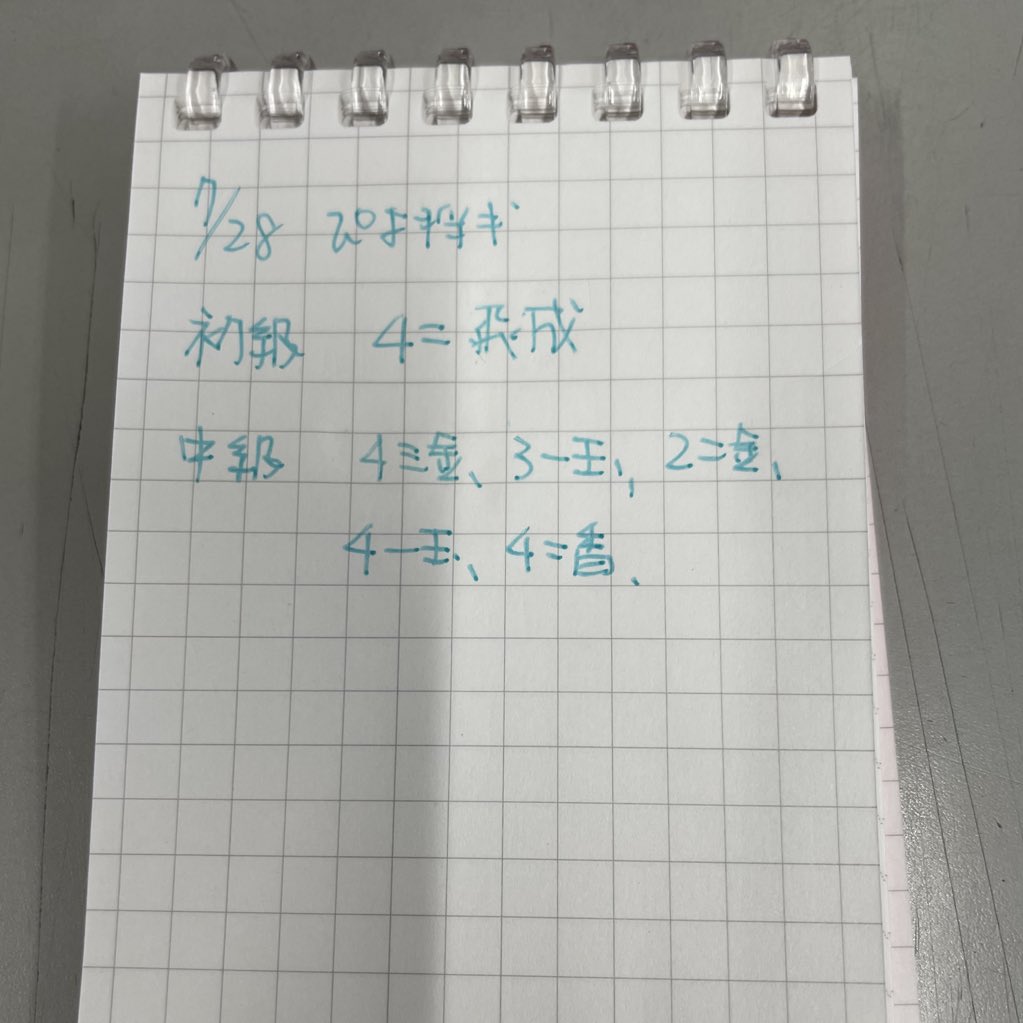 7/28 ぴよ将棋
初級 4二飛成
中級 4三金、3一玉、2二金、
4一玉、4二香、